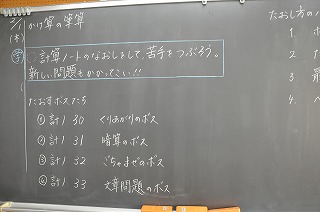 かけ算の筆算
(木)
計算ノートのなおしをして、苦手をつぶろう。
新しい問題もかかってこい!!
たおすボスたち
① 計ノ 30 くりあがりのボス
② 計ノ 31 暗算のボス
③ 計ノ 32 ごちゃまぜのボス
④ 計ノ 33 文章問題のボス
たおし方の
1.
2.
3.
4.